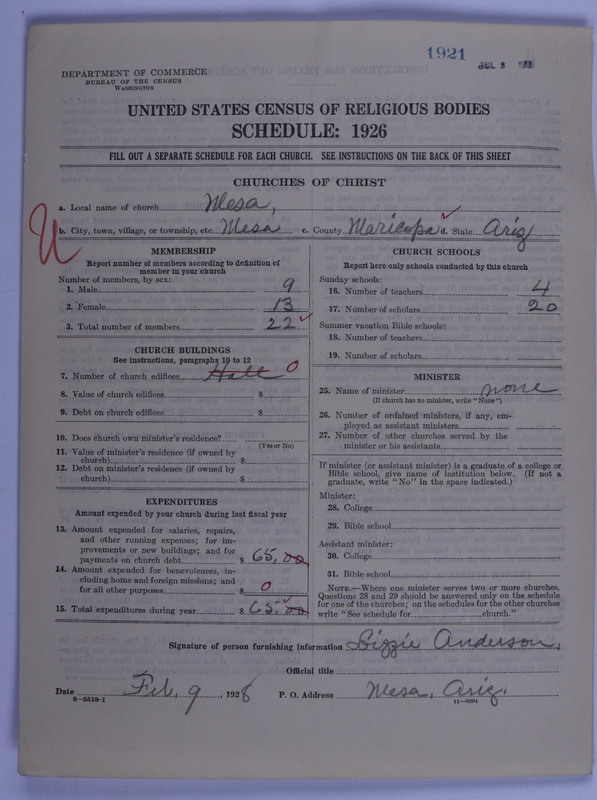 1921
JUL 3 192
DEPARTMENT OF COMMERCE
BUREAU OF THE CENSUS
WASHINGTON
UNITED STATES CENSUS OF RELIGIOUS BODIES
SCHEDULE: 1926
FILL OUT A SEPARATE SCHEDULE FOR EACH CHURCH. SEE INSTRUCTIONS ON THE BACK OF THIS SHEET
CHURCHES OF CHRIST
a. Local name of church Mesa,
U
b. City, town, village, or township, etc. Mesa c. County Maricopa d. State Ariz
MEMBERSHIP
Report number of members according to definition of
member in your church
Number of members, by sex:
1. Male 9
2. Female 13
3. Total number of members 22
CHURCH BUILDINGS
See instructions, paragraphs 10 to 12
7. Number of church edifices Hall 0
8. Value of church edifices $
9. Debt on church edifices $
10. Does church own minister's residence?
(Yes or No)
11. Value of minister's residence (if owned by
church) $
12. Debt on minister's residence (if owned by
church) $
EXPENDITURES
Amount expended by your church during last fiscal year
13. Amount expended for salaries, repairs,
and other running expenses; for im-
provements or new buildings; and for
payments on church debt $ 65,00
14. Amount expended for benevolences, in-
cluding home and foreign missions; and
for all other purposes $ 0
15. Total expenditures during year $ 65,00
CHURCH SCHOOLS
Report here only schools conducted by this church
Sunday schools:
16. Number of teachers 4
17. Number of scholars 20
Summer vacation Bible schools:
18. Number of teachers
19. Number of scholars
MINISTER
25. Name of minister none
(If church has no minister, write "None")
26. Number of ordained ministers, if any, em-
ployed as assistant ministers
27. Number of other churches served by the
minister or his assistants
If minister (or assistant minister) is a graduate of a college or
Bible school, give name of institution below. (If not a
graduate, write "No" in the space indicated.)
Minister:
28. College
29. Bible school
Assistant minister:
30. College
31. Bible school
NOTE.—Where one minister serves two or more churches,
Questions 28 and 29 should be answered only on the schedule
for one of the churches; on the schedules for the other churches
write "See schedule for church."
Signature of person furnishing information Lizzie Anderson,
Official title
Date Feb. 9, 1928 P. O. Address Mesa, Ariz.
8—5518-1 11—9294